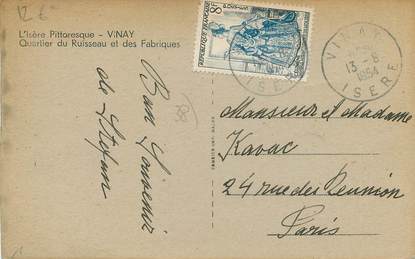 12 €
L'Isère Pittoresque - VINAY
Quartier du Ruisseau et des Fabriques
Bon Souvenir
de Stefan
8F
REPUBLIQUE FRANÇAISE
POSTES
VINAY
13 -8
1954
ISERE
Monsieur et Madame
Kavac
24 rue des Reunion
Paris